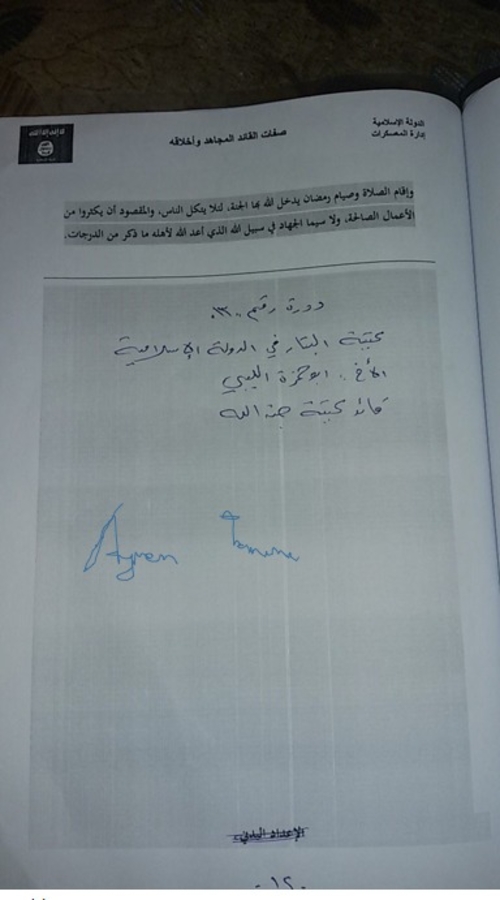 الدولة الإسلامية
إدارة المعسكرات
صفات القائد المجاهد وأخلاقه
وإقام الصلاة وصيام رمضان يدخل الله بها الجنة، لئلا يتكل الناس، والمقصود أن يكثروا من
الأعمال الصالحة، ولا سيما الجهاد في سبيل الله الذي أعد الله لأهله ما ذكر من الدرجات.
دورة رقم
كتيبة البتار في الدولة الإسلامية
الأخ : ابو حمزة الليبي
قائد كتيبة الله
Aymen
الإعداد البدني
- ١٢ -